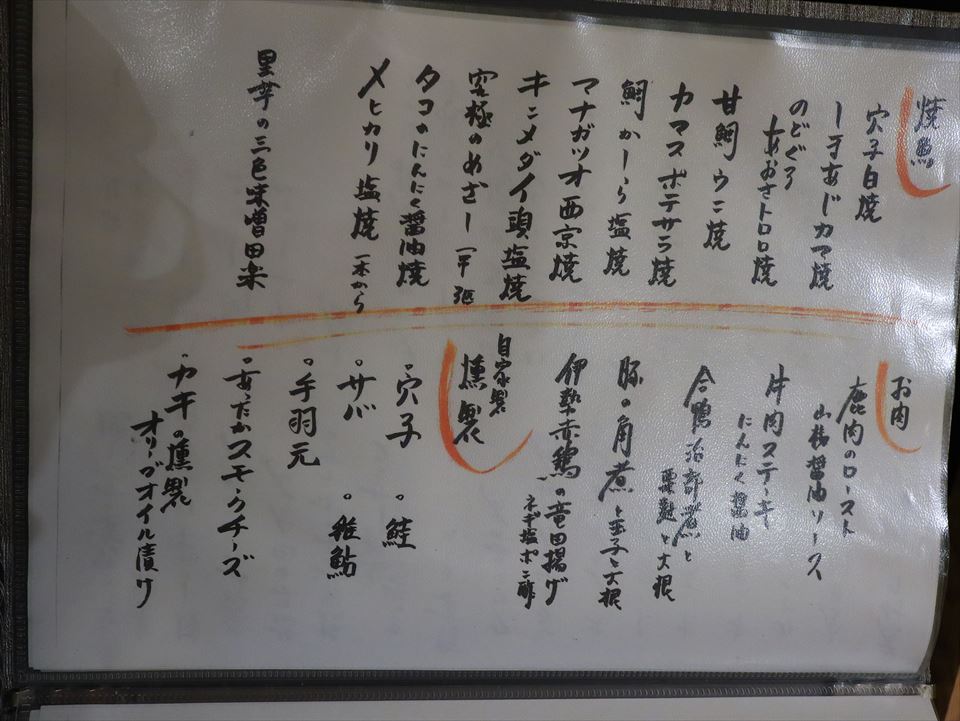 焼魚
穴子白焼
シマあじカマ焼
のどぐろ
あおさトロロ焼
甘鯛ウニ焼
カマスポテサラ焼
鯛かしら塩焼
マナガツオ西京焼
キンメダイ頭塩焼
究極のめざし 一干
タコのにんにく醤油焼
メヒカリ塩焼 一本から
里芋の三色味噌田楽
お肉
鹿肉のロースト
山椒醤油ソース
牛肉ステーキ
にんにく醤油
合鴨治部煮と
粟麩と大根
豚の角煮と玉子と大根
伊勢赤鶏の竜田揚げ
ネギ塩ポン酢
自家製
燻製
。穴子 。鮭
。サバ 。稚鮎
。手羽元
。あったかスモークチーズ
。カキの燻製
オリーブオイル漬け